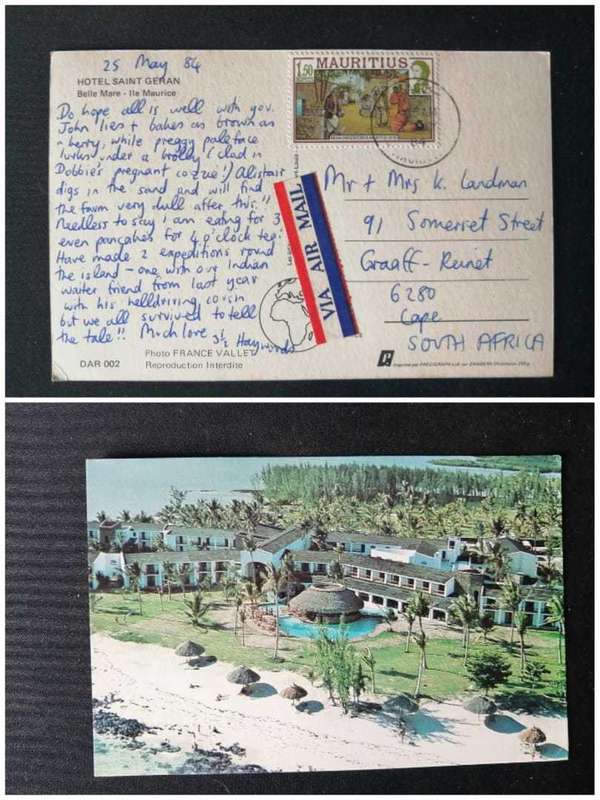 25 May 84
HOTEL SAINT GERAN
Belle Mare - Ile Maurice
Do hope all is well with you.
John lies + bakes as brown as
a berry, while preggy paleface
lurks under a brolly (clad in
Dobbie's pregnant cozzie!) Alistair
digs in the sand and will find
the farm very dull after this!!
Needless to say I am eating for 3
even pancakes for 4 o'clock tea!
Have made 2 expeditions round
the island - one with our Indian
waiter friend from last year
with his helldriving cousin
but we all survived to tell
the tale!! Much love
3½ Haywards
DAR 002
Photo FRANCE VALLEY
Reproduction Interdite
1.50
MAURITIUS
VIA AIR MAIL
Mr + Mrs K. Landman
91 Somerset Street
Graaff-Reinet
6280
Cape
SOUTH AFRICA